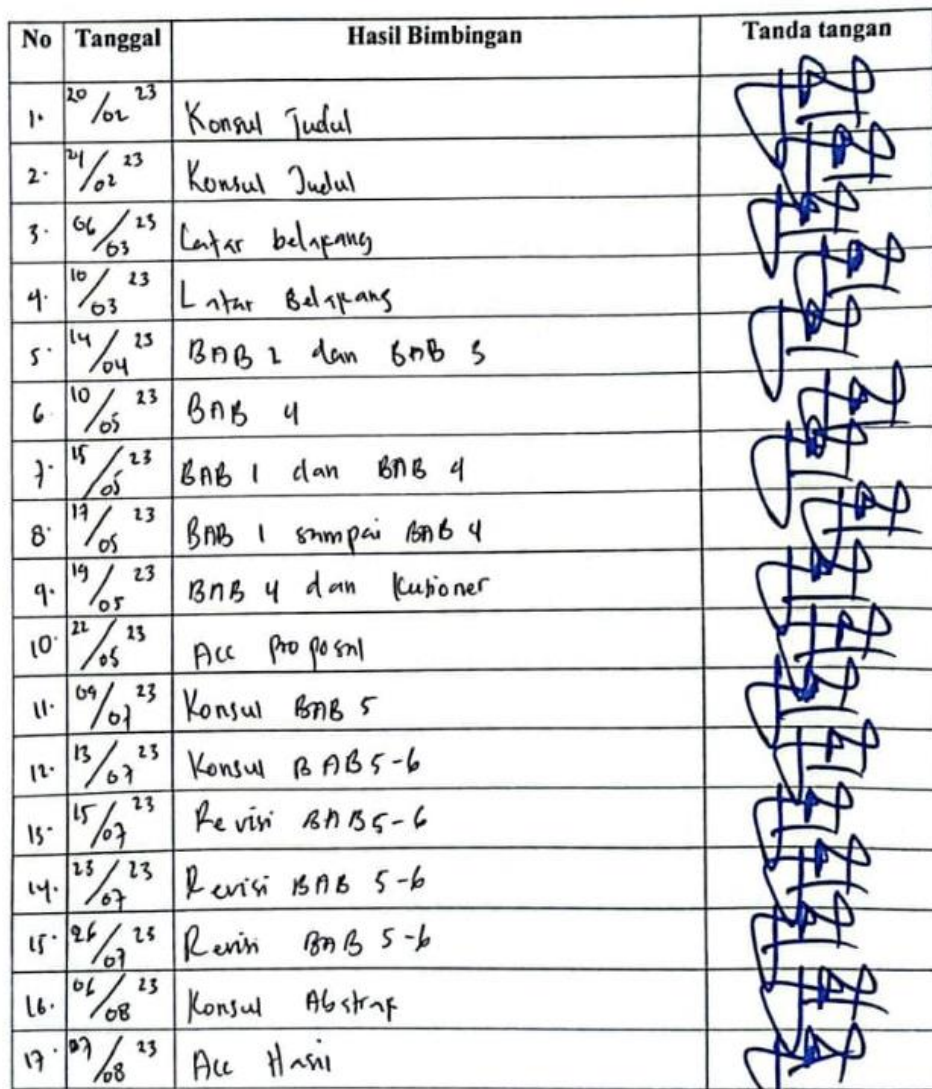 No Tanggal Hasil Bimbingan Tanda tangan
1. 20/02 23 Konsul Judul
2. 24/02 23 Konsul Judul
3. 06/03 23 Latar belakang
4. 10/03 23 Latar Belakang
5. 14/04 23 BAB 2 dan BAB 3
6. 10/05 23 BAB 4
7. 15/05 23 BAB 1 dan BAB 4
8. 17/05 23 BAB 1 sampai BAB 4
9. 19/05 23 BAB 4 dan Kusioner
10. 22/05 23 Acc Proposal
11. 09/07 23 Konsul BAB 5
12. 13/07 23 Konsul BAB 5-6
13. 15/07 23 Revisi BAB 5-6
14. 23/07 23 Revisi BAB 5-6
15. 26/07 23 Revisi BAB 5-6
16. 06/08 23 Konsul Abstrak
17. 07/08 23 Acc Hasil